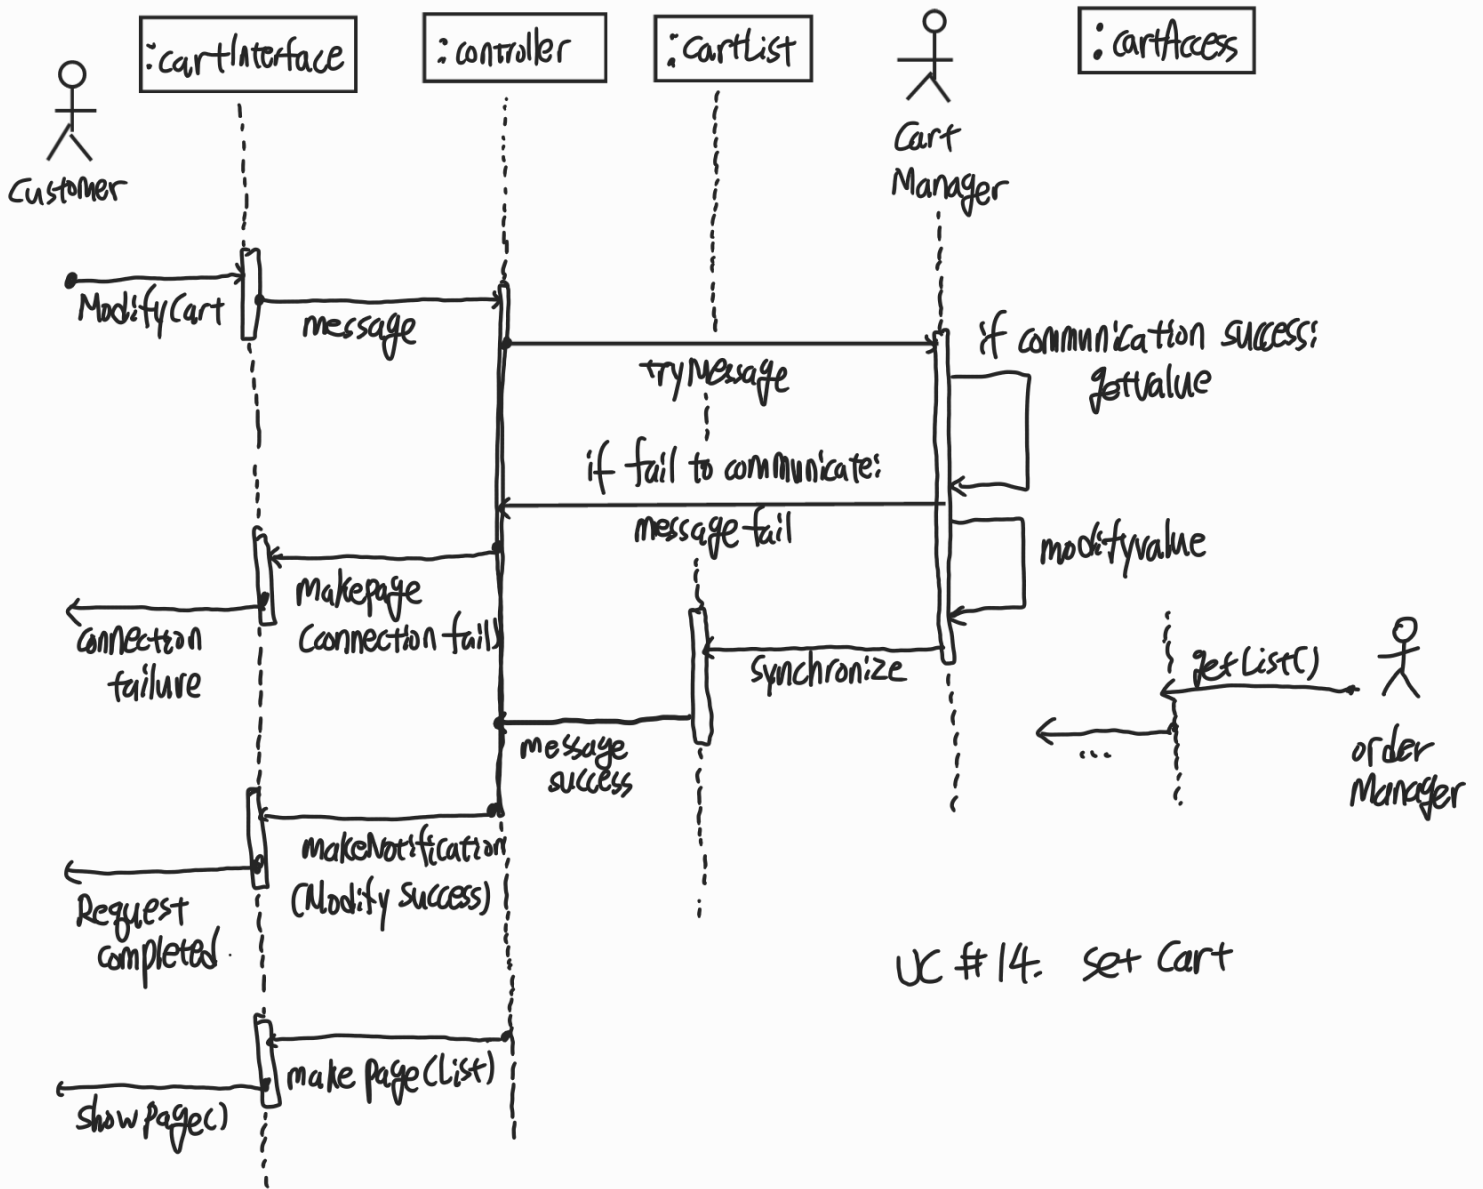 :cartInterface
:controller
:CartList
:cartAccess
Customer
Cart
Manager
ModifyCart
message
tryMessage
if communication success:
getvalue
if fail to communicate:
message fail
modifyvalue
makepage
(connection fail)
connection
failure
synchronize
getList()
order
Manager
...
message
success
makeNotification
(Modify success)
Request
completed
UC #14. Set Cart
make page(List)
show page()